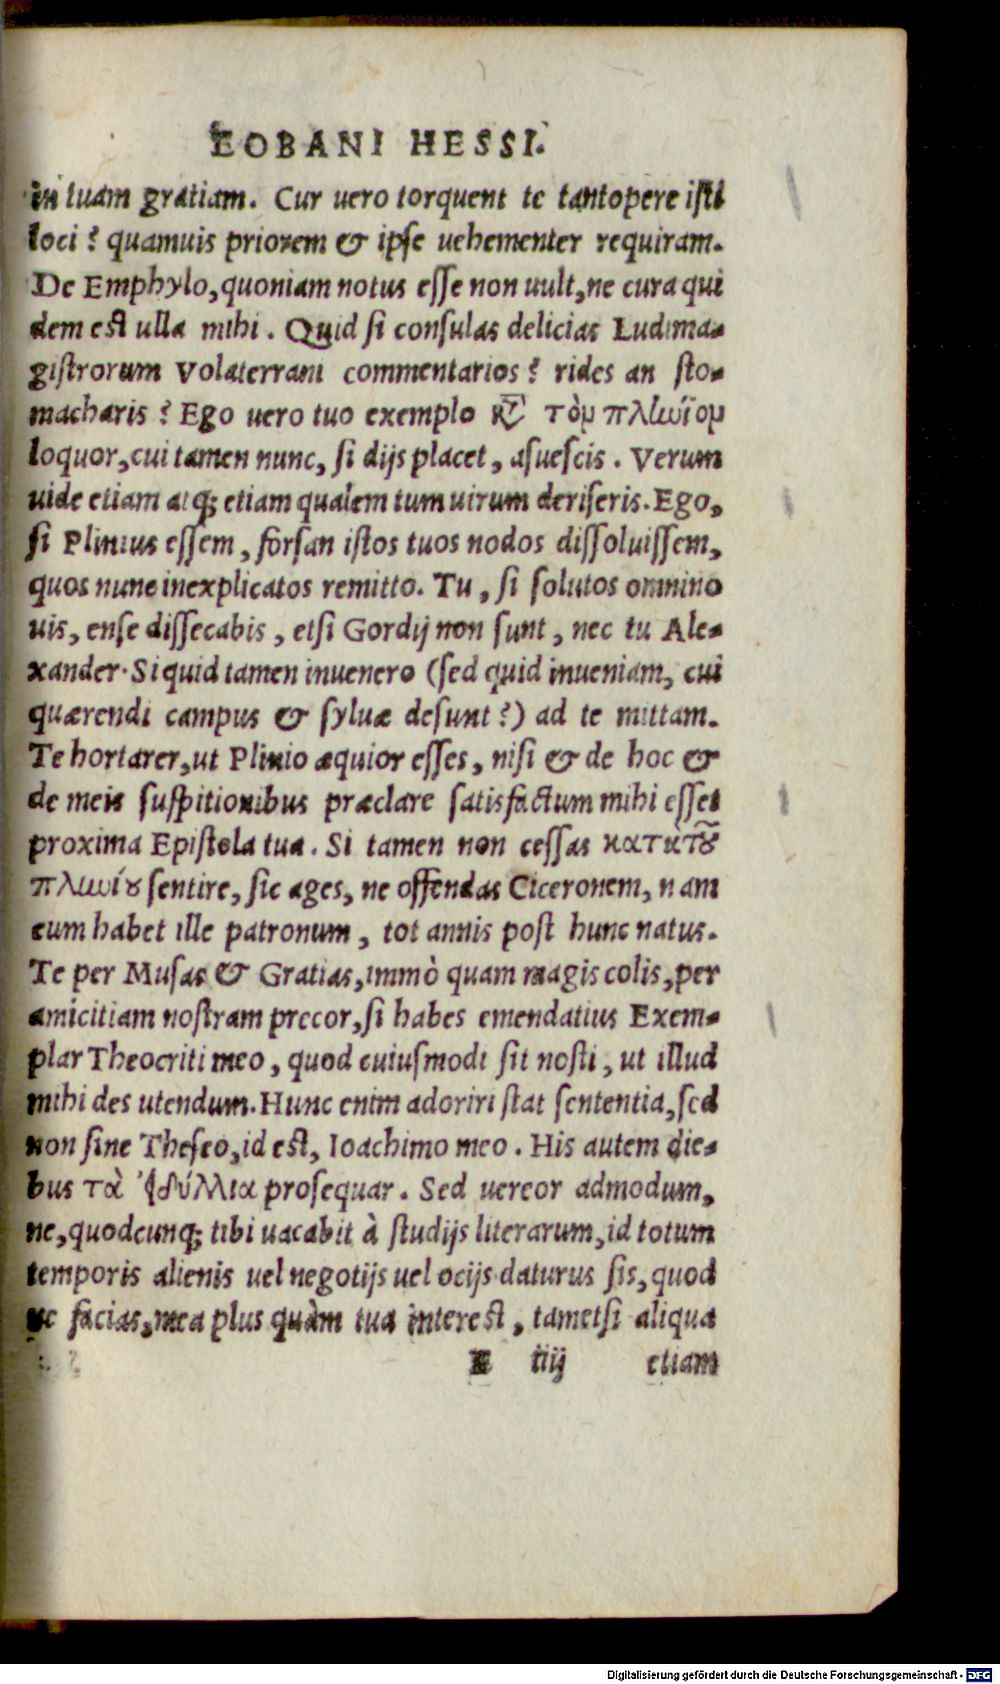 EOBANI HESSI.
in tuam gratiam. Cur uero torquent te tantopere isti
loci? quamuis priorem & ipse uehementer requiram.
De Emphylo, quoniam notus esse non uult, ne cura qui
dem est ulla mihi. Quid si consulas delicias Ludima-
gistrorum Volaterrani commentarios? rides an sto-
macharis? Ego uero tuo exemplo τὸμ πλινίομ
loquor, cui tamen nunc, si dijs placet, asuescis. Verum
uide etiam atq; etiam qualem tum uirum deriseris. Ego,
si Plinius essem, forsan istos tuos nodos dissoluissem,
quos nunc inexplicatos remitto. Tu, si solutos omnino
uis, ense dissecabis, etsi Gordij non sunt, nec tu Ale-
xander. Si quid tamen inuenero (sed quid inueniam, cui
quærendi campus & syluæ desunt?) ad te mittam.
Te hortarer, ut Plinio æquior esses, nisi & de hoc &
de meis suspitionibus præclare satisfactum mihi esset
proxima Epistola tua. Si tamen non cessas κατὰ τȣ͂
πλινίȣ sentire, sic ages, ne offendas Ciceronem, nam
eum habet ille patronum, tot annis post hunc natus.
Te per Musas & Gratias, immò quam magis colis, per
amicitiam nostram precor, si habes emendatius Exem-
plar Theocriti meo, quod cuiusmodi sit nosti, ut illud
mihi des utendum. Hunc enim adoriri stat sententia, sed
non sine Theseo, id est, Ioachimo meo. His autem die-
bus τὰ ἰδύλλια prosequar. Sed uereor admodum,
ne, quodcunq; tibi uacabit à studijs literarum, id totum
temporis alienis uel negotijs uel ocijs daturus sis, quod
ne facias, mea plus quàm tua interest, tametsi aliqua
E iiij etiam
Digitalisierung gefördert durch die Deutsche Forschungsgemeinschaft - DFG